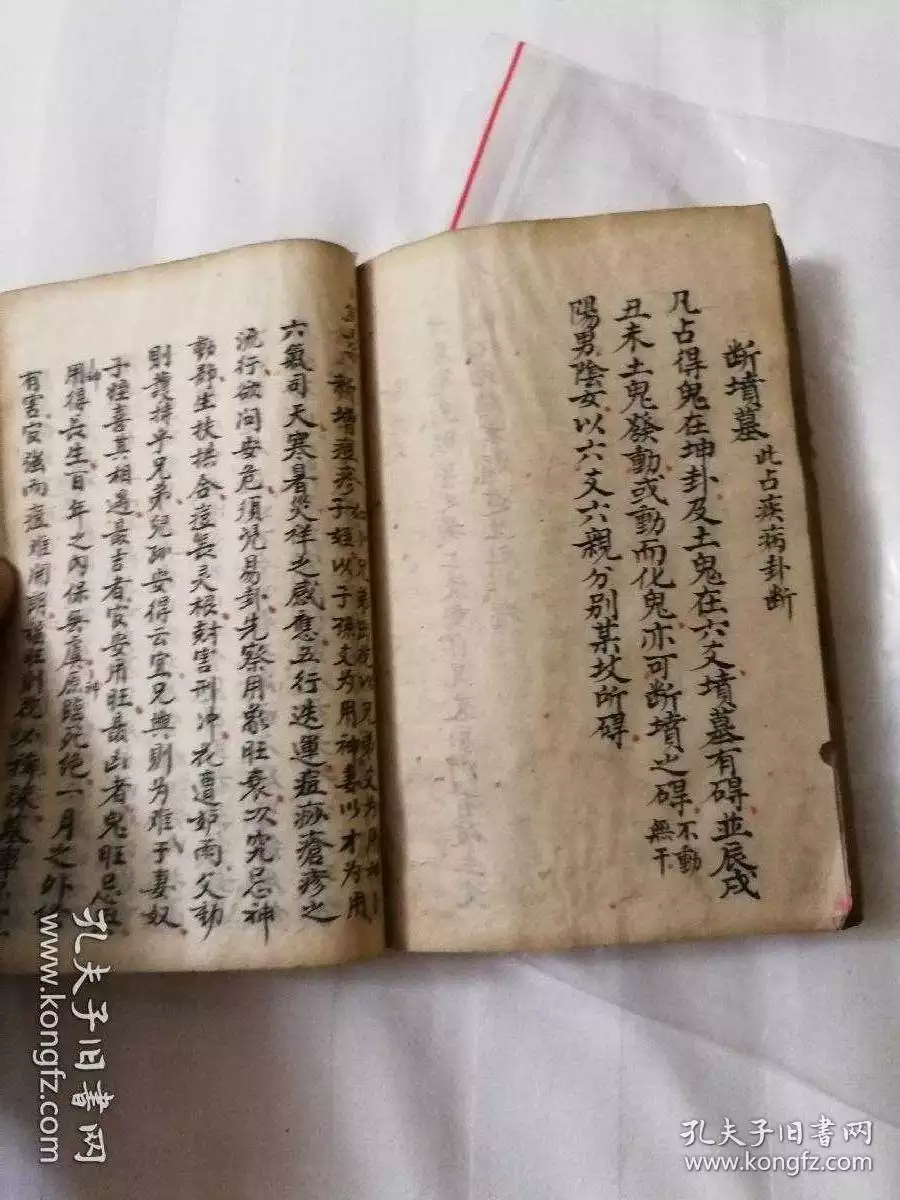 断墳墓 此占疾病卦断
凡占得鬼在坤卦及土鬼在六爻墳墓有碍並辰戌
丑未土鬼發動或動而化鬼亦可断墳之碍不動無干
陽男陰女以六爻六親分别某坟所碍
新增痘疹子嫒以子孫爻為用神妻以才為用
六氣司天寒暑災祥之感應五行迭運痘痧瘡疹之
流行欲问安危須凭易卦先察用象旺衰次究忌神
動静生扶拱合痘無灵根財害刑冲花遭妒雨父動
則喪掉乎兄弟兒孙安得云宜兄興則為难于妻奴
子旺喜其相遇最吉者安安用旺最凶者鬼旺忌興
用得長生百年之内保無虞原臨死绝一月之外
有害安強而痘难開朗
孔夫子旧书网
www.kongfz.com
孔夫子旧书网
www.kongfz.com